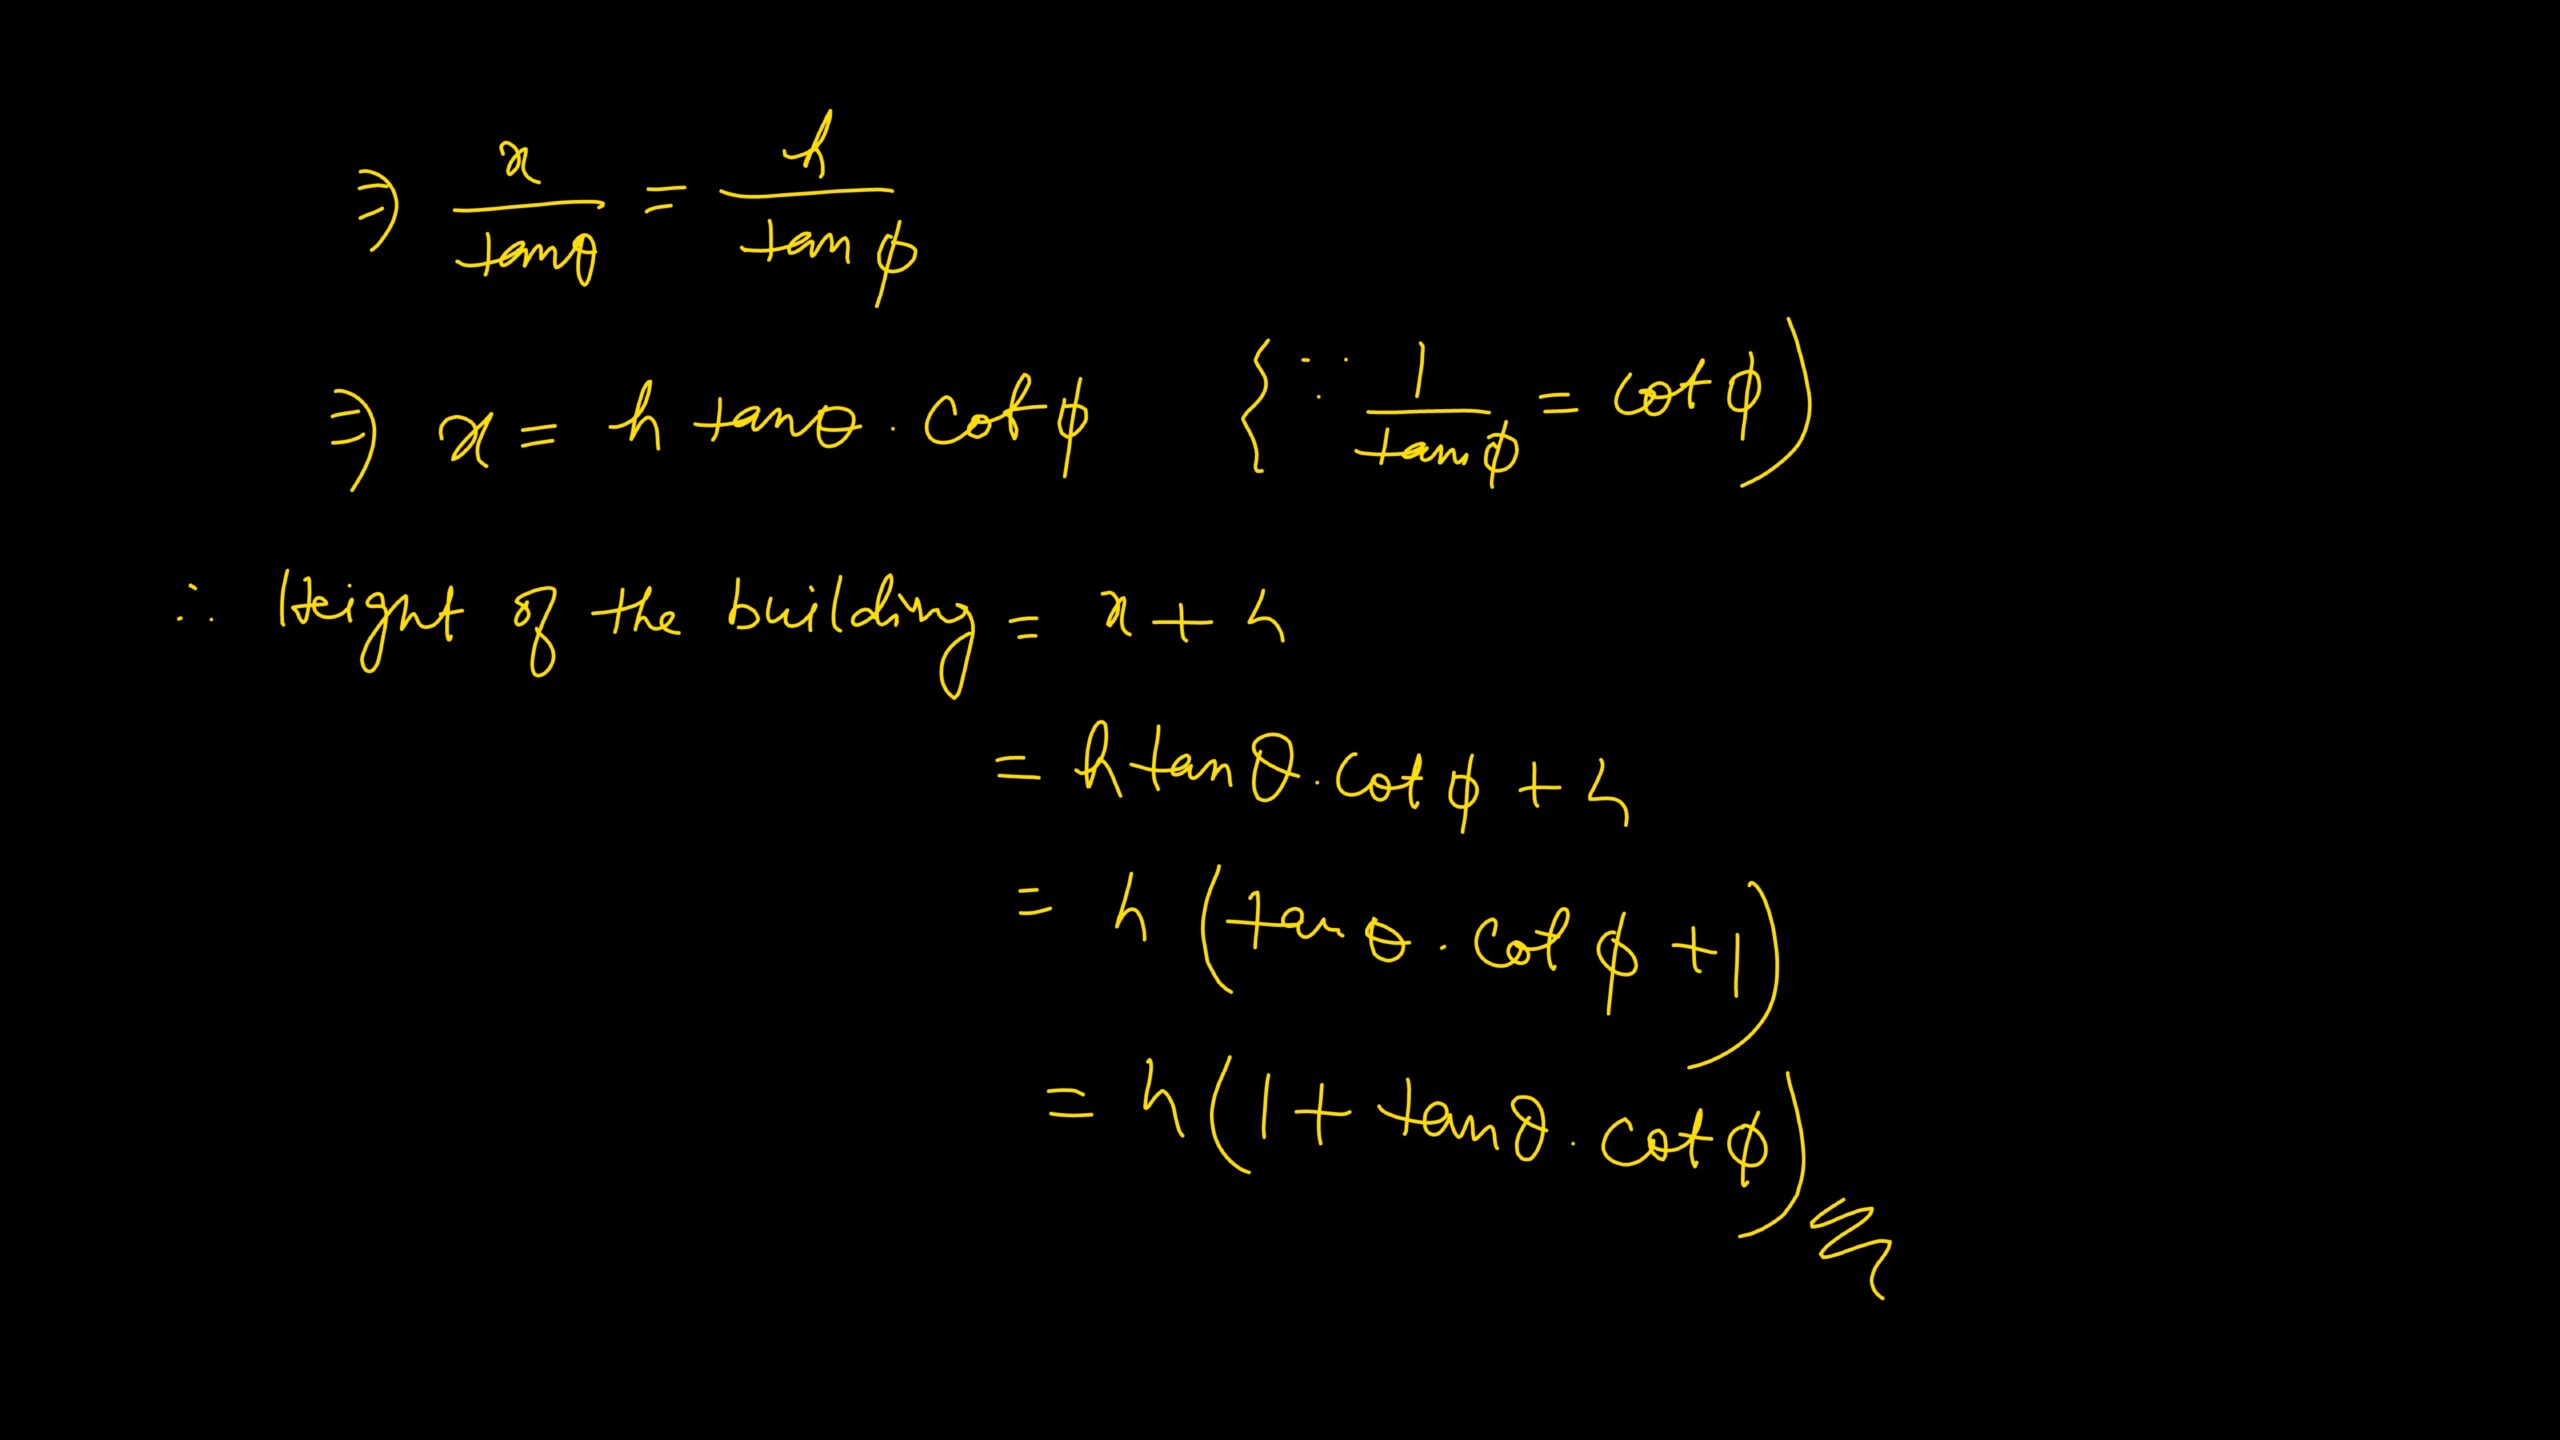 ⇒ x/tanθ = h/tan ϕ
⇒ x = h tanθ . cot ϕ { ∵ 1/tanϕ = cot ϕ )
∴ Height of the building = x + h
= h tan θ . cot ϕ + h
= h (tan θ . cot ϕ + 1)
= h (1 + tan θ . cot ϕ)